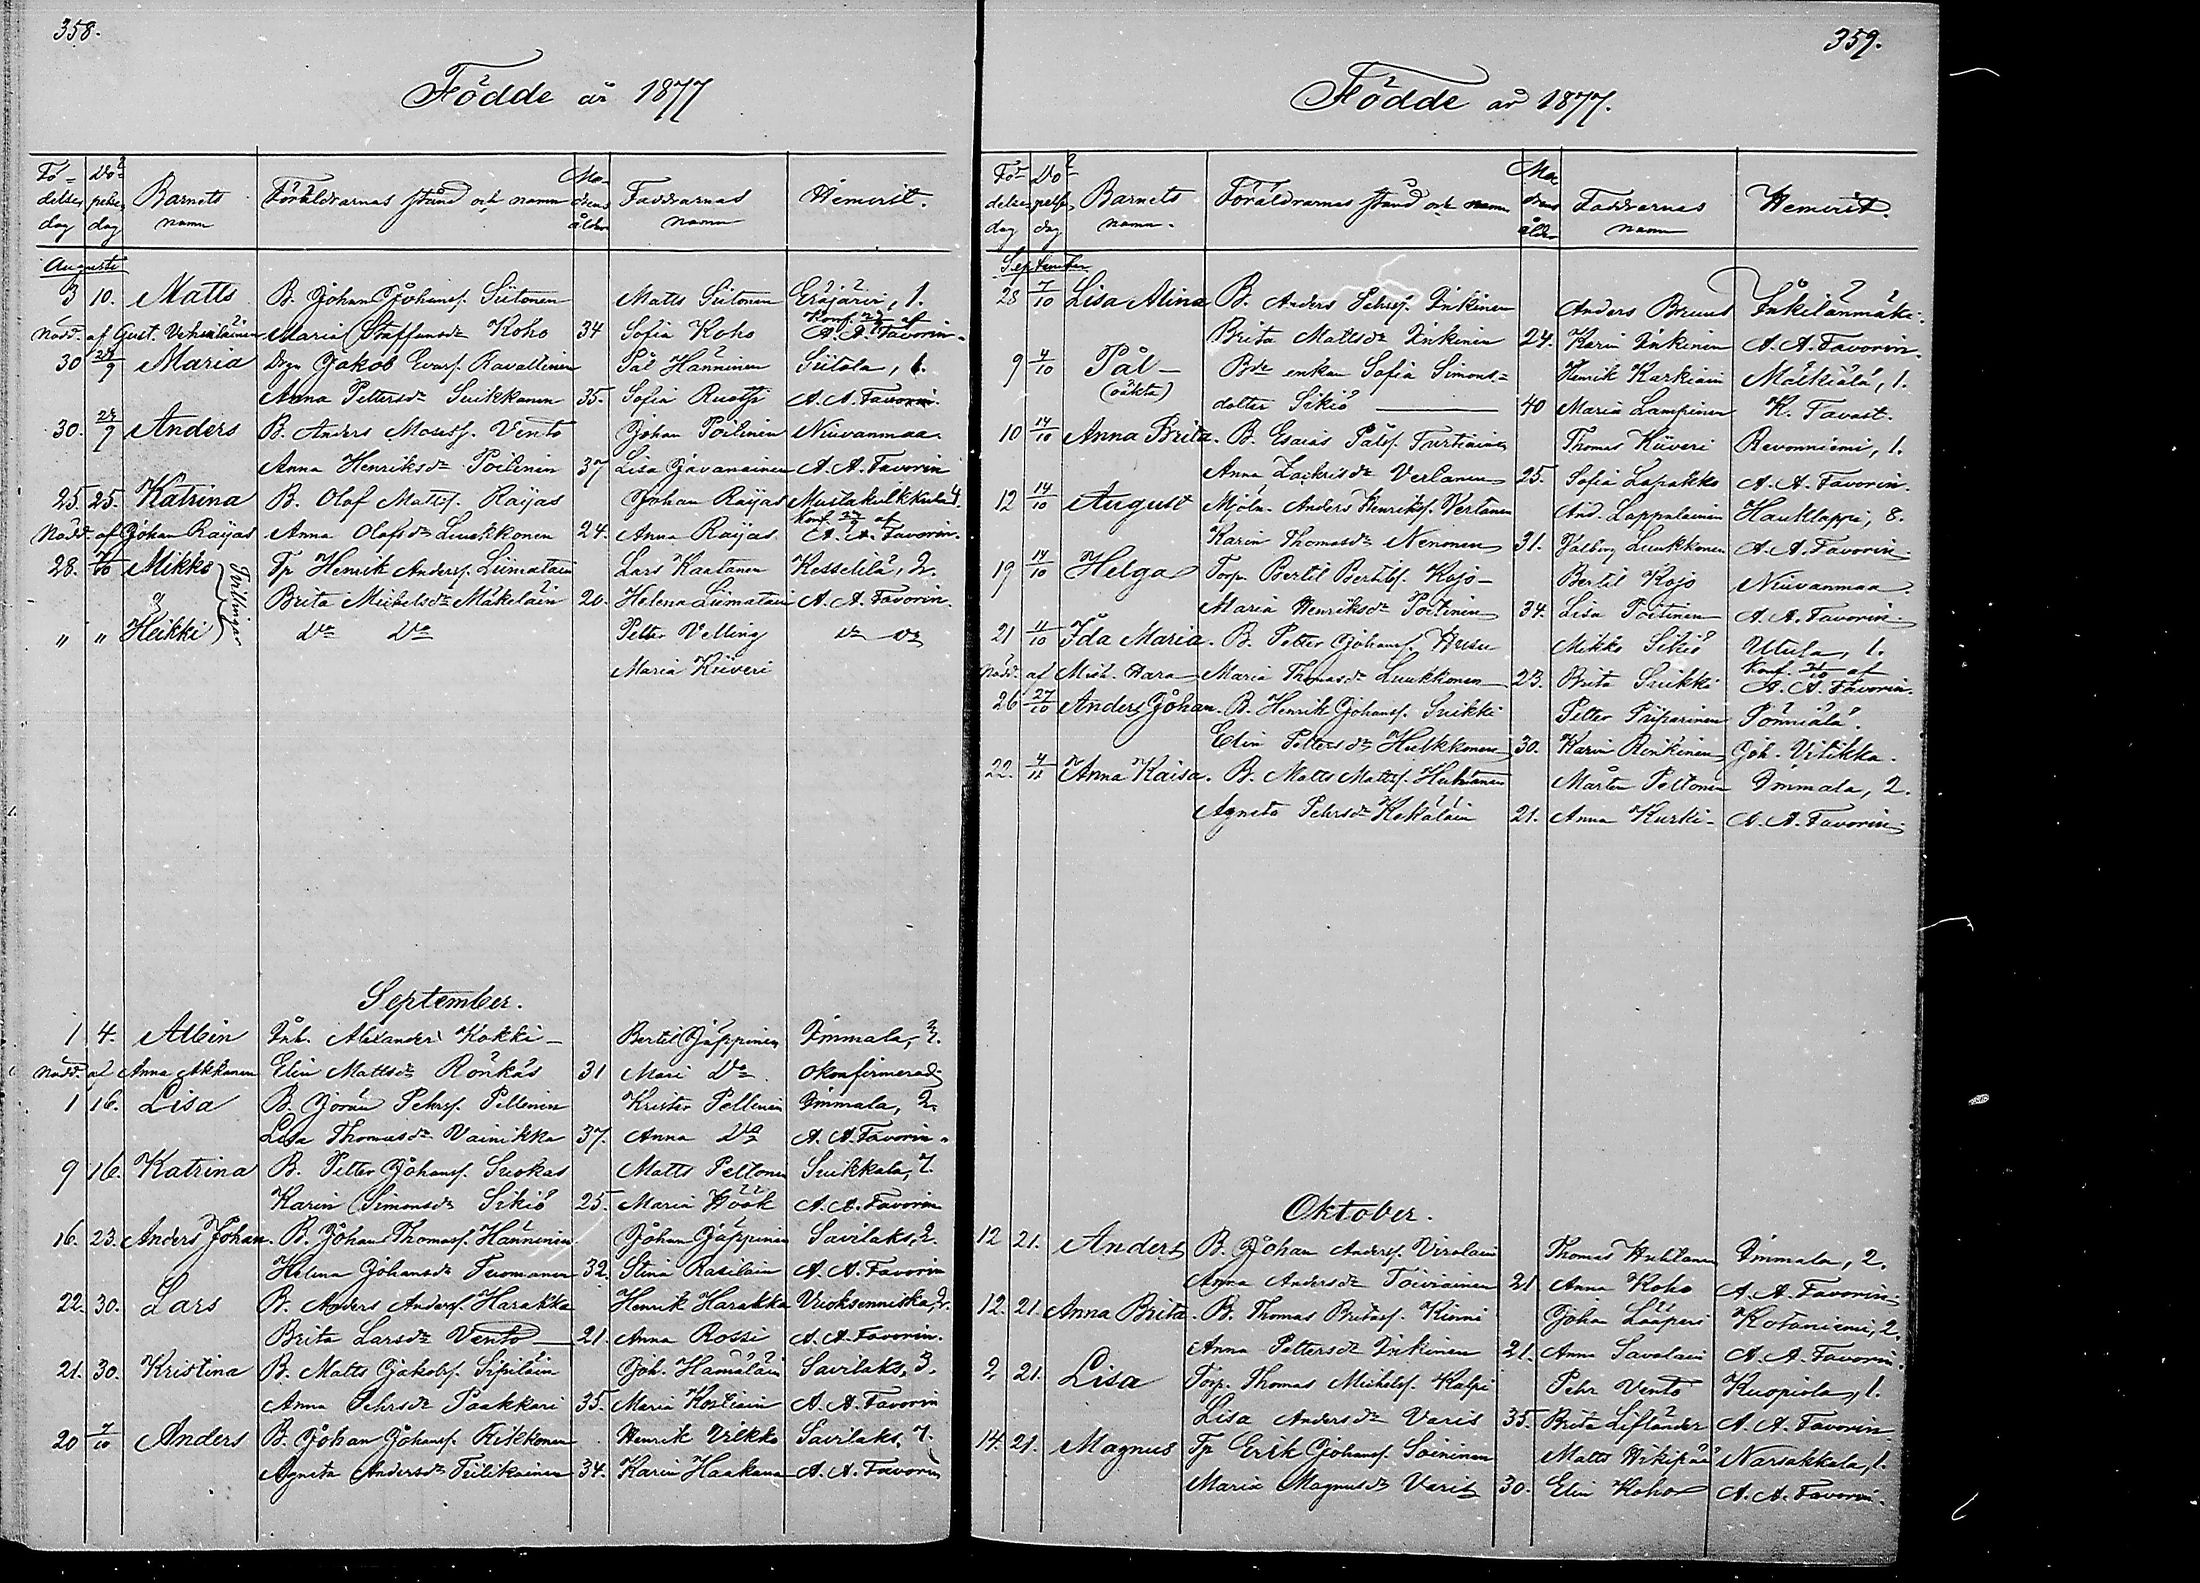 358.
Födde år 1877
Födelsedag Döpelsedag Barnets namn Föräldrarnas stånd och namn Modrens ålder Faddrarnas namn Hemvist.
Augusti
3 10. Matts B. Johan Johansf. Siitonen Matts Siitonen Eräjärvi, 1.
Nödd. af Gust. Vehviläinen Maria Staffansdr Koho 34 Sofia Koho Konf. af A. A. Favorin.
30 29/9 Maria Drgn Jakob Evasf. Ravattinen Pål Hänninen Siitola, 1.
Anna Pettersdr Suikkanen 35. Sofia Ruotsi A. A. Favorin.
30. 29/9 Anders B. Anders Mosesf. Vento Johan Poitinen Niuvanmaa.
Anna Henriksdr Poitinen 37 Lisa Javanainen A. A. Favorin
25. 25. Katrina B. Olof Mattsf. Raijas Johan Raijas Mustakulkkula 4.
Nödd. af Johan Raijas Anna Olofsdr Luukkonen 24. Anna Raijas Konf. af A. A. Favorin.
28. 7/10 Mikko Tp Henrik Andersf. Liimatain Lars Kaatanen Kesselilä, 2.
& Tvillingar Brita Michelsdr Mäkeläin 20. Helena Liimatain A. A. Favorin.
" " Heikki Do Do Petter Velling do do
Maria Kiiveri
September.
1 4. Albin Inh. Alexander Kokki Bertil Jäppinen Immala, 3.
Nödd. af Anna Akkanen Elin Mattsdr Rönkäs 31 Mari Do okonfirmerad
1 16. Lisa B. Jöran Pehrsf. Pellinen Krister Pellinen Immala, 2.
Lisa Thomasdr Vainikka 37. Anna Do A. A. Favorin.
9 16. Katrina B. Petter Johansf. Suokas Matts Peltonen Suikkala, 7.
Karin Simonsdr Sikiö 25. Maria Höök A. A. Favorin
16. 23. Anders Johan. B. Johan Thomasf. Hänninen Johan Jäppinen Savilaks, 2.
Helena Johansdr Tuomanen 32. Stina Rasilain A. A. Favorin
22. 30. Lars B. Anders Andersf. Harakka Henrik Harakka Vuoksenniska, 2.
Brita Larsdr Vento 21. Anna Rossi A. A. Favorin.
21. 30. Kristina B. Matts Jakobsf. Sipiläin Joh. Hämäläin Savilaks, 3.
Anna Pehrsdr Paakkari 35. Maria Kostiain A. A. Favorin
20 7/10 Anders B. Johan Johansf. Kikkonen Henrik Vilkko Savilaks, 7.
Agneta Andersdr Tiilikainen 34. Karin Haakana A. A. Favorin
359.
Födde år 1877.
Födelsedag Döpelsedag Barnets namn. Föräldrarnas stånd och namn Modrens ålder Faddrarnas namn Hemvist.
September
28 7/10 Lisa Alina B. Anders Pehrsf. Inkinen Anders Bruus Inkilänmäki.
Brita Mattsdr Inkinen 24. Karin Inkinen A. A. Favorin.
9 4/10 Pål Bde enkan Sofia Simons- Henrik Karkiain Mälkiälä, 1.
(oäkta) dotter Sikiö 40 Maria Lampinen K. Favast.
10 14/10 Anna Brita. B. Esaias Pålsf. Turtiainen Thomas Kiiveri Revonniemi, 1.
Anna Zachrisdr Vertanen 25. Sofia Lapakko A. A. Favorin.
12 14/10 August Mjöln. Anders Henriksf. Vertanen And. Lappalainen Hauklappi, 8.
Karin Thomasdr Nenonen 31. Valborg Luukkonen A. A. Favorin.
19 14/10 Helga Torp. Bertil Bertilsf. Kojo Bertil Kojo Niuvanmaa.
Maria Henriksdr Poitinen 34. Lisa Poitinen A. A. Favorin.
21 /10 Ida Maria. B. Petter Johansf. Husu Mikko Sikiö Utula, 1.
Nödd. af Mich. Hara Maria Thomasdr Luukkonen 23. Brita Suikki Konf. af A. A. Favorin.
26 27/10 Anders Johan. B. Henrik Johansf. Suikki Petter Piiparinen Pönniälä.
Elin Pettersdr Hulkkonen 30. Karin Rinkinen Joh. Vitikka.
22. 4/11 Anna Kaisa. B. Matts Mattsf. Huhtanen Mårten Peltonen Immala, 2.
Agneta Pehrsdr Kekäläin 21. Anna Kurki A. A. Favorin.
Oktober.
12 21. Anders B. Johan Andersf. Virolain Thomas Huhtanen Immala, 2.
Anna Andersdr Toiviainen 21 Anna Koho A. A. Favorin.
12. 21. Anna Brita. B. Thomas Britasf. Kinni Johan Lääperi Kotaniemi, 2.
Anna Pettersdr Inkinen 21. Anna Savolain A. A. Favorin.
2 21. Lisa Torp. Thomas Michelsf. Kalpi Pehr Vento Kuopiola, 1.
Lisa Andersdr Varis 35. Brita Lifländer A. A. Favorin
14. 21. Magnus Tp Erik Johansf. Soininen Matts Hikipää Narsakkala, 1.
Maria Magnusdr Varis 30. Elin Koho A. A. Favorin.